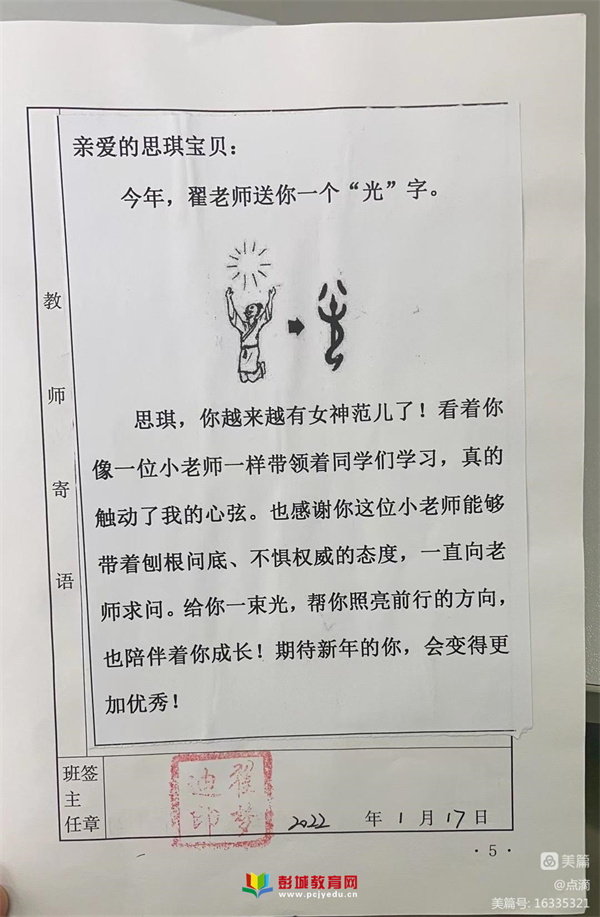 亲爱的思琪宝贝：
今年，翟老师送你一个“光”字。
教师寄语
思琪，你越来越有女神范儿了！看着你
像一位小老师一样带领着同学们学习，真的
触动了我的心弦。也感谢你这位小老师能够
带着刨根问底、不惧权威的态度，一直向老
师求问。给你一束光，帮你照亮前行的方向，
也陪伴着你成长！期待新年的你，会变得更
加优秀！
班主任签章
翟梦迪印
2022 年 1 月 17 日
·5·
彭城教育网
www.pcjyedu.cn
美篇
@点滴
美篇号: 16335321